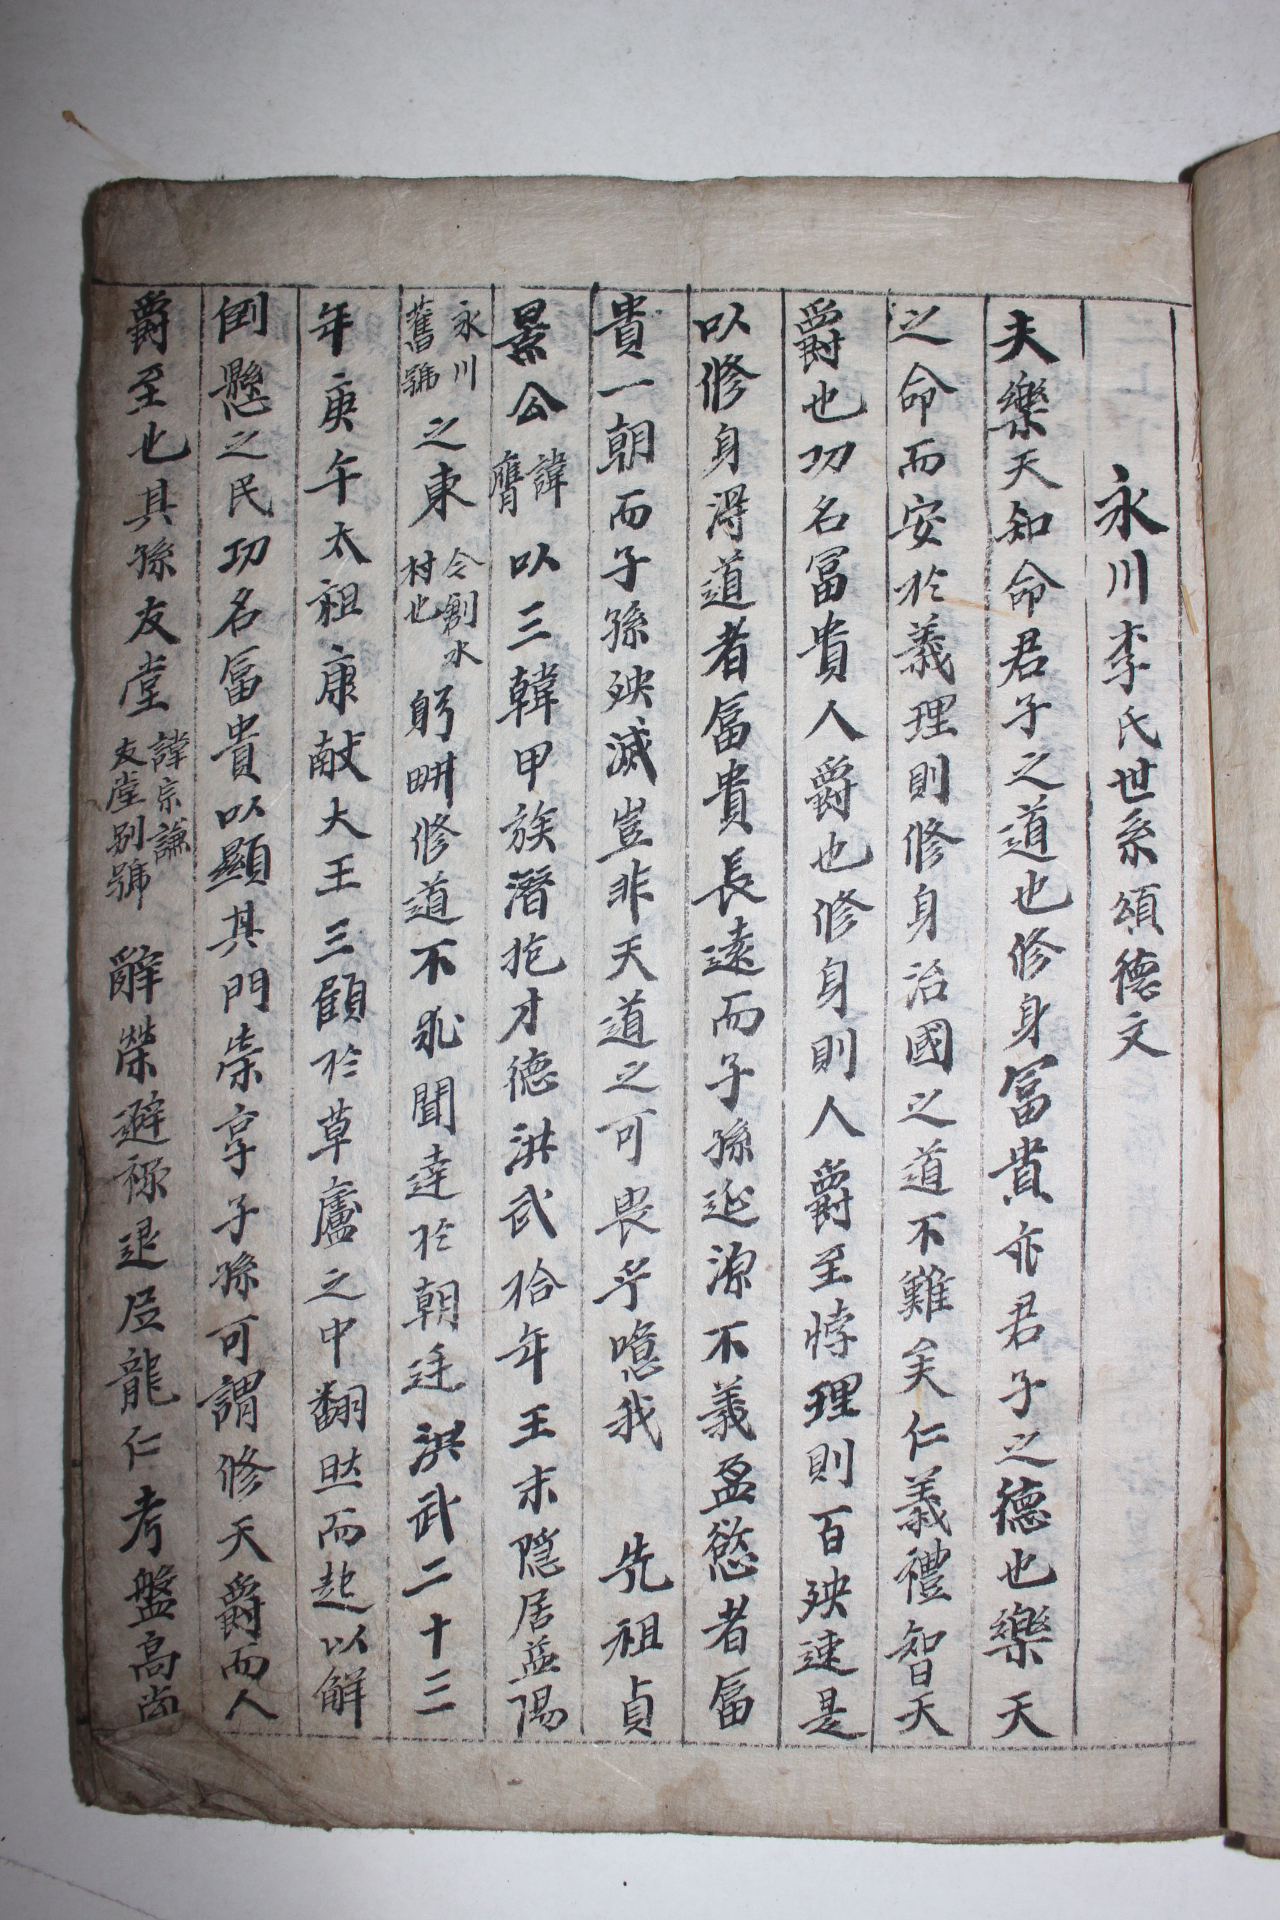 永川李氏世系頌德文
夫樂天知命君子之道也修身富貴亦君子之德也樂天
之命而安於義理則修身治國之道不難矣仁義禮智天
爵也功名冨貴人爵也修身則人爵至悖理則百殃速是
以修身得道者富貴長遠而子孫延源不義盈慾者富
貴一朝而子孫殃滅豈非天道之可畏乎噫我 先祖貞
景公諱膺以三韓甲族潛抱才德洪武拾年王末隱居益陽
永川舊號之東今創水村也躬畊修道不求聞達於朝廷洪武二十三
年庚午太祖康献大王三顧於草廬之中翻然而起以解
倒懸之民功名富貴以顯其門崇享子孫可謂修天爵而人
爵至也其孫友堂諱宗謙友堂別號辭榮避祿退居龍仁考盤高尚